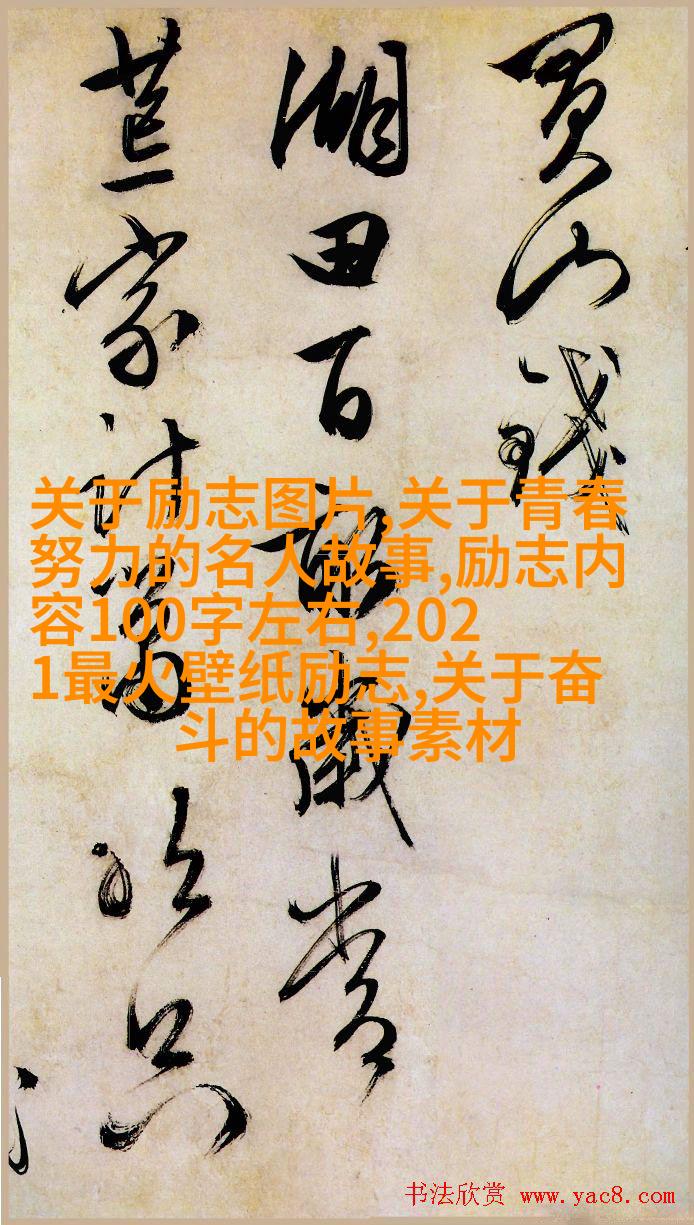 買山錢
湖田百畝歲常
荒家計只
关于励志图片,关于青春
努力的名人故事,励志内
容100字左右,202
1最火壁纸励志,关于奋
斗的故事素材
书法欣赏 www.yac8.com